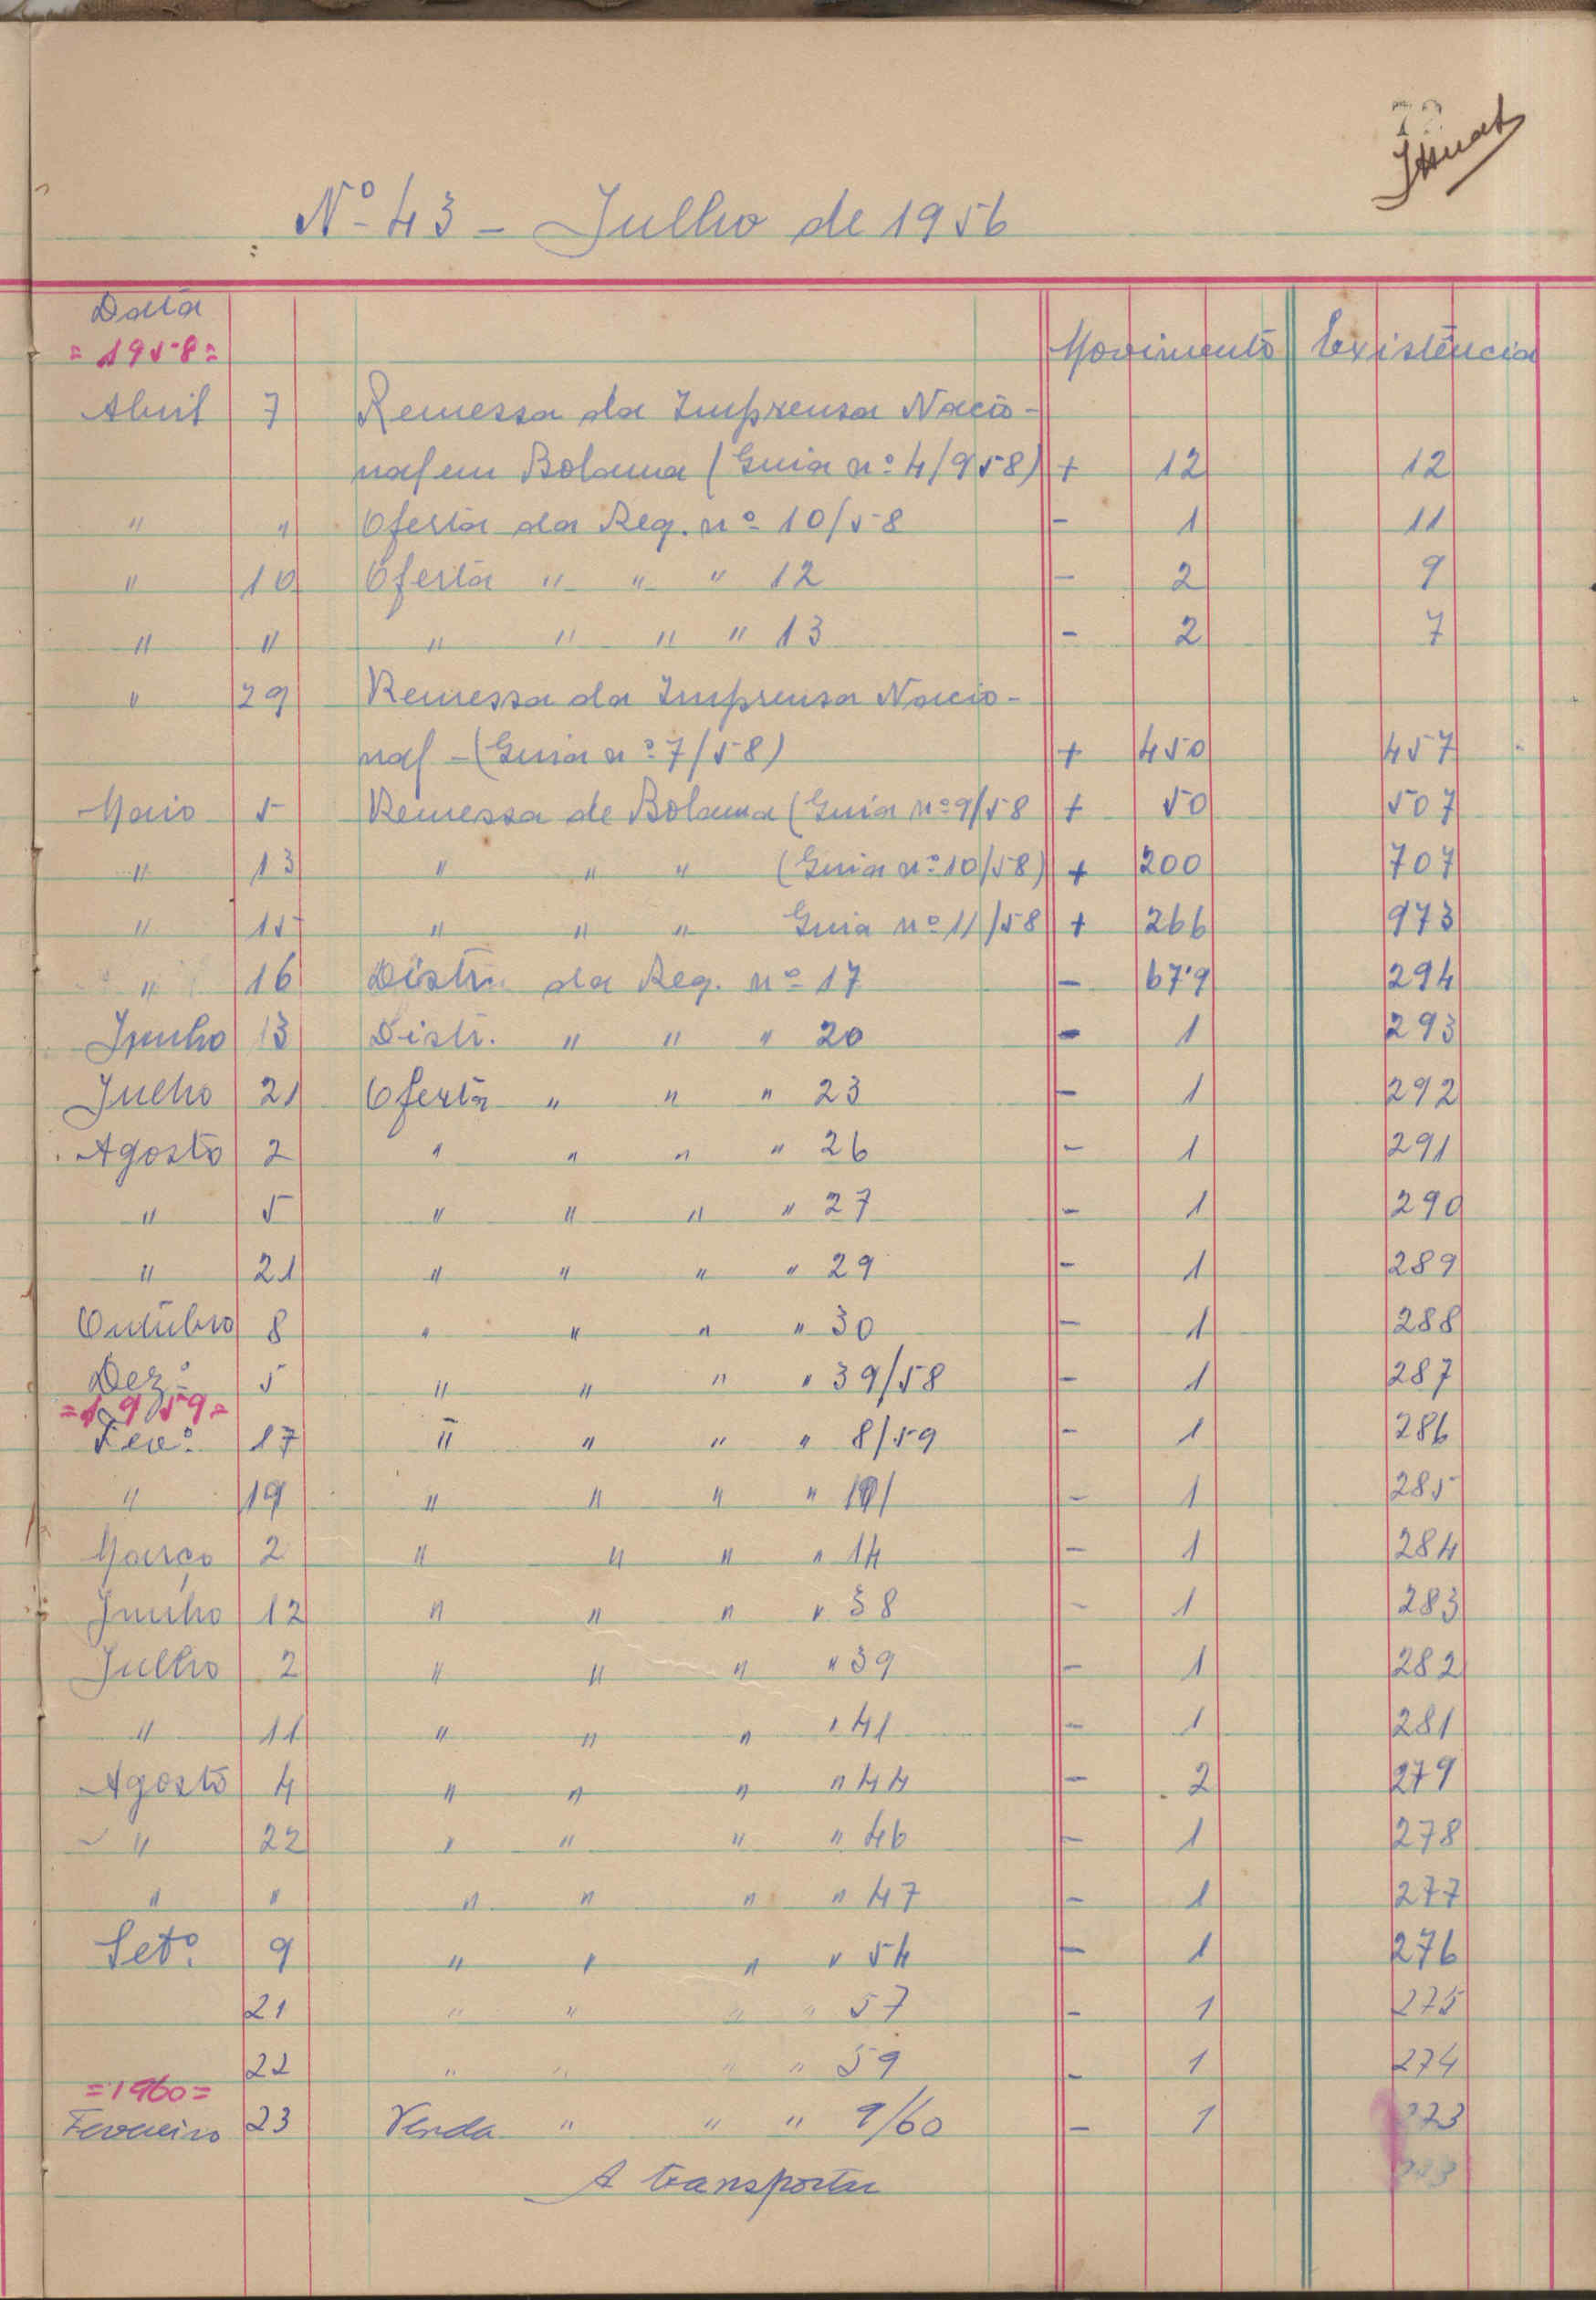 72
Nº 43 - Julho de 1956
Data Movimento Existência
= 1958 =
Abril 7 Remessa da Imprensa Nacio-
nal em Bolama (Guia nº 4/958) + 12 12
" " Oferta da Req. nº 10/58 - 1 11
" 10 Oferta " " " 12 - 2 9
" " " " " " 13 - 2 7
" 29 Remessa da Imprensa Nacio-
nal - (Guia nº 7/58) + 450 457
Maio 5 Remessa de Bolama (Guia nº 9/58 + 50 507
" 13 " " " (Guia nº 10/58) + 200 707
" 15 " " " Guia nº 11/58 + 266 973
" 16 Distr. da Req. nº 17 - 679 294
Junho 13 Distr. " " " 20 - 1 293
Julho 21 Oferta " " " 23 - 1 292
Agosto 2 " " " " 26 - 1 291
" 5 " " " " 27 - 1 290
" 21 " " " " 29 - 1 289
Outubro 8 " " " " 30 - 1 288
Dezº 5 " " " " 39/58 - 1 287
= 1959 =
Fevº 17 " " " " 8/59 - 1 286
" 19 " " " " - 1 285
Março 2 " " " " 14 - 1 284
Junho 12 " " " " 38 - 1 283
Julho 2 " " " " 39 - 1 282
" 11 " " " " 41 - 1 281
Agosto 4 " " " " 44 - 2 279
" 22 " " " " 46 - 1 278
" " " " " " 47 - 1 277
Setº 9 " " " " 54 - 1 276
21 " " " " 57 - 1 275
22 " " " " 59 - 1 274
= 1960 =
Fevereiro 23 Venda " " " 9/60 - 1 273
A transportar 273